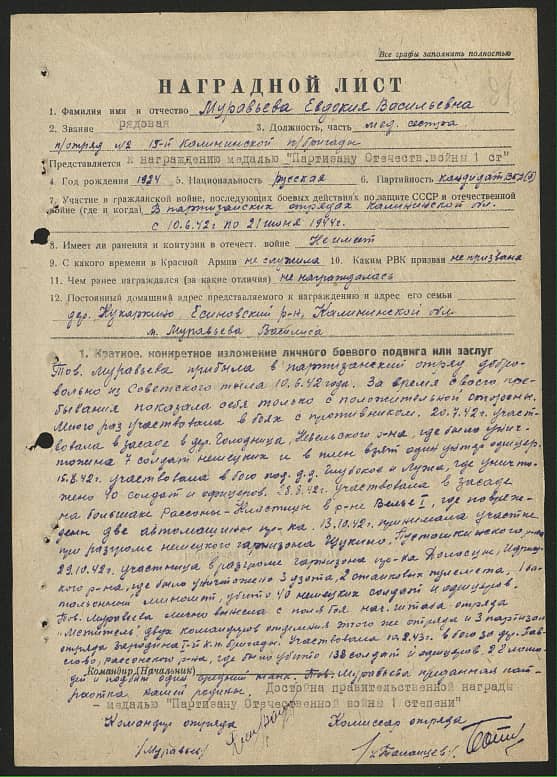 Все графы заполнять полностью
НАГРАДНОЙ ЛИСТ
1. Фамилия имя и отчество Муравьева Евдокия Васильевна
2. Звание рядовая 3. Должность, часть мед. сестра
п/отряд №2 13-й Калининской п/бригады
Представляется к награждению медалью "Партизану Отечеств.войны 1 ст"
4. Год рождения 1924 5. Национальность русская 6. Партийность кандидат
7. Участие в гражданской войне, последующих боевых действиях по защите СССР и отечественной
войне (где и когда) В партизанских отрядах Калининской обл.
с 10.6.42г по 21 июня 1944г.
8. Имеет ли ранения и контузии в отечест. войне Не имеет
9. С какого времени в Красной Армии не служила 10. Каким РВК призван не призвана
11. Чем ранее награждался (за какие отличия) не награждалась
12. Постоянный домашний адрес представляемого к награждению и адрес его семьи
дер. Есиновский р-н, Калининской обл
м. Муравьева Василиса
1. Краткое, конкретное изложение личного боевого подвига или заслуг
Тов. Муравьева прибыла в партизанский отряд добро-
вольно из Советского тыла 10.6.42 года. За время своего пре-
бывания показала себя только с положительной стороны.
Много раз участвовала в боях с противником. 20.7.42г. участ-
вовала в засаде в дер. Голодница, Невельского р-на, где было унич-
тожено 7 солдат немецких и в плен взят один унтер офицер.
15.8.42г. участвовала в бою под д.д. Глубокое и Лужа, где уничто-
жено 10 солдат и офицеров. 28.8.42г. участвовала в засаде
на большаке Россоны-Клястицы в р-не Велье I, где повреж-
дены две автомашины пр-ка. 13.10.42г. принимала участие
при разгроме немецкого гарнизона Щукино, Пустошкинского р-на
29.10.42г. участница в разгроме гарнизона пр-ка Долосцы,
р-на, где было уничтожено 3 дзота, 2 станковых пулемета, 1 ба-
тальонный миномет, убито 40 немецких солдат и офицеров.
Тов. Муравьева лично вынесла с поля боя нач. штаба отряда
"Мститель" двух командиров отделения этого же отряда и 3 партизан
отряда п/бригады. Участвовала 1.2.43г. в бою за дер.
россонского р-на, где было убито 138 солдат и офицеров,
и подбит один средний танк. Тов. Муравьева преданная пат-
Командир (Начальник)
риотка нашей родины. Достойна правительственной награды
- медалью "Партизану Отечественной войны 1 степени"
Командир отряда Комиссар отряда
/Муравьев/